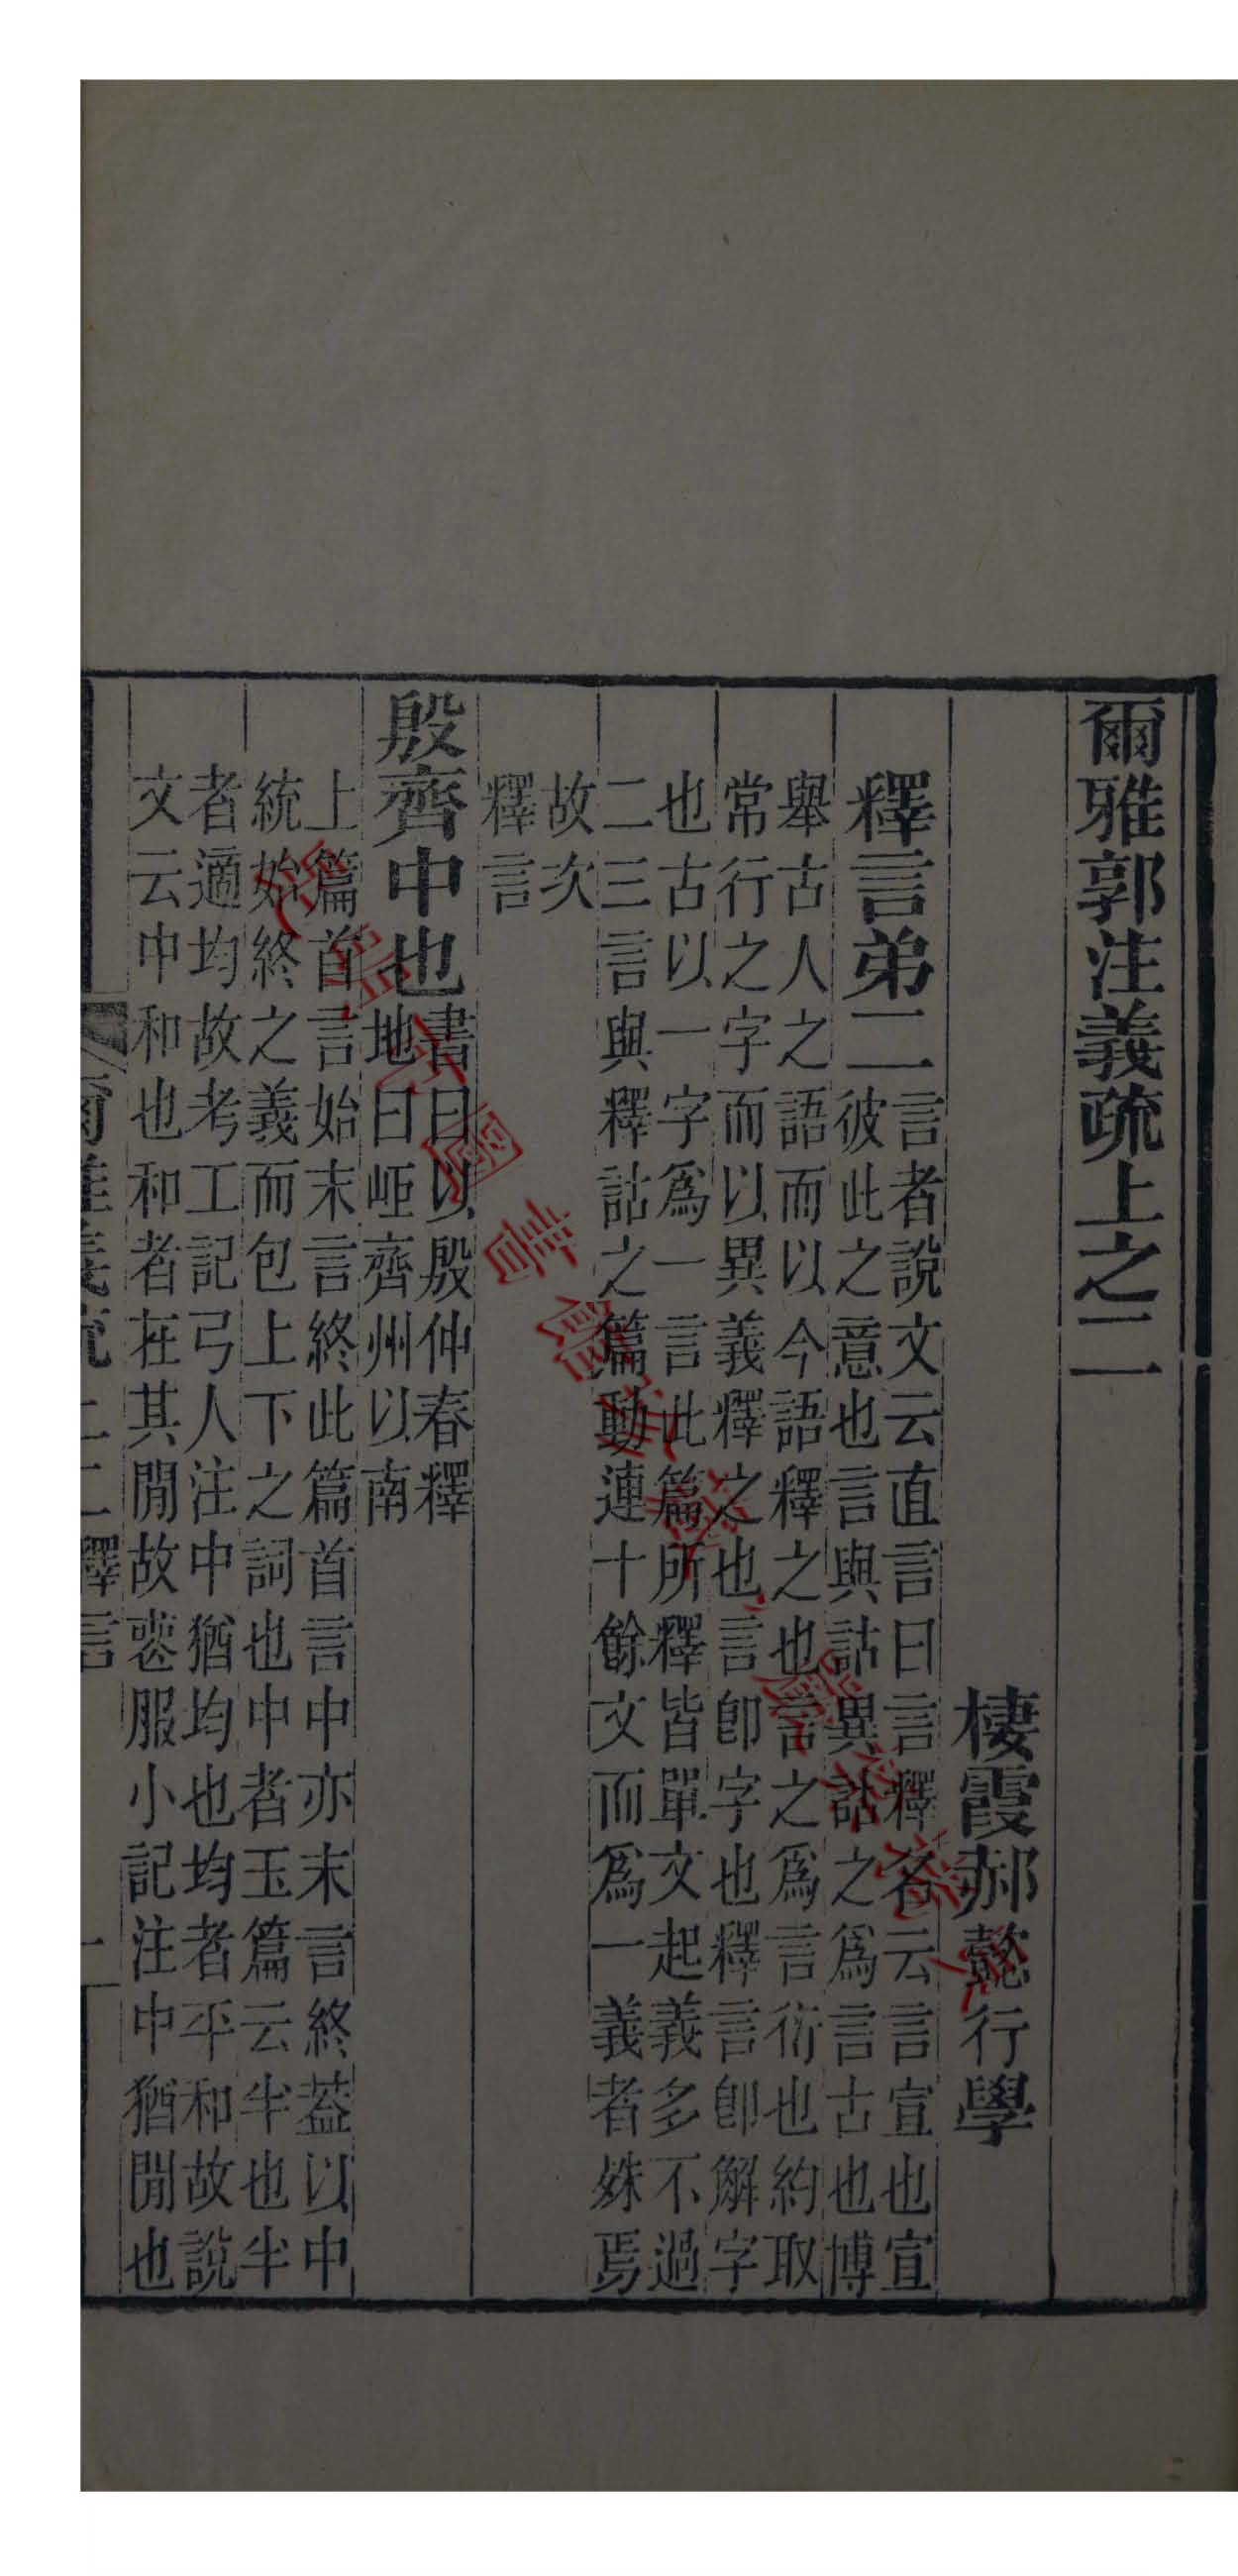 爾雅郭注義疏上之二
棲霞郝懿行學
釋言弟二
言者說文云直言曰言釋名云言宣也宣
彼此之意也言與詁異詁之爲言古也博
舉古人之語而以今語釋之也言之爲言衍也約取
常行之字而以異義釋之也言卽字也釋言卽解字
也古以一字爲一言此篇所釋皆單文起義多不過
二三言與釋詁之篇動連十餘文而爲一義者姝焉
故次
釋言
殷齊中也
書曰以殷仲春釋
地曰岠齊州以南
上篇首言始末言終此篇首言中亦末言終葢以中
統始終之義而包上下之詞也中者玉篇云半也半
者適均故考工記弓人注中猶均也均者平和故說
文云中和也和者在其閒故喪服小記注中猶閒也
爾雅義疏上二釋言
一